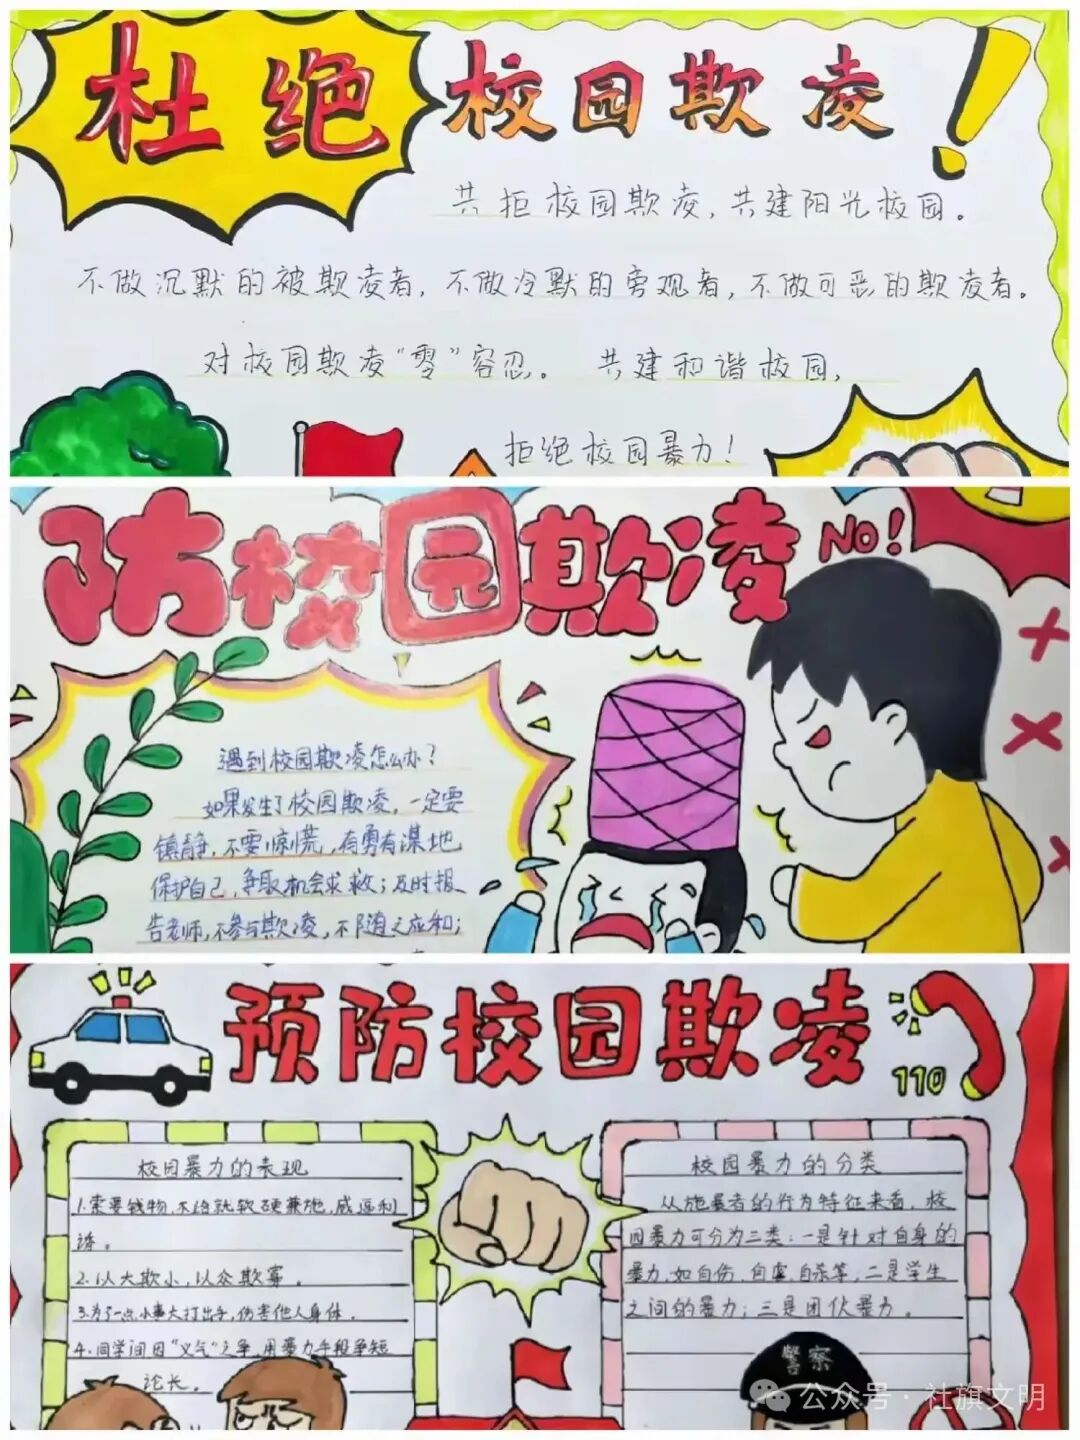 杜绝校园欺凌!
共拒校园欺凌,共建阳光校园。
不做沉默的被欺凌者,不做冷默的旁观者,不做可恶的欺凌者。
对校园欺凌“零”容忍。 共建和谐校园,
拒绝校园暴力!
防校园欺凌 NO!
遇到校园欺凌怎么办?
如果发生了校园欺凌,一定要
镇静,不要惊慌,有勇有谋地
保护自己,争取机会求救;及时报
告老师,不参与欺凌,不随之应和;
预防校园欺凌
110
校园暴力的表现
1.索要钱物,不给就软硬兼施,威逼利
诱。
2.以大欺小,以众欺寡。
3.为了一点小事大打出手,伤害他人身体。
4.同学间因“义气”之争,用暴力手段争短
论长。
校园暴力的分类
从施暴者的行为特征来看,校
园暴力可分为三类:一是针对自身的
暴力,如自伤,自虐,自杀等,二是学生
之间的暴力;三是团伙暴力。
警察
公众号·社旗文明